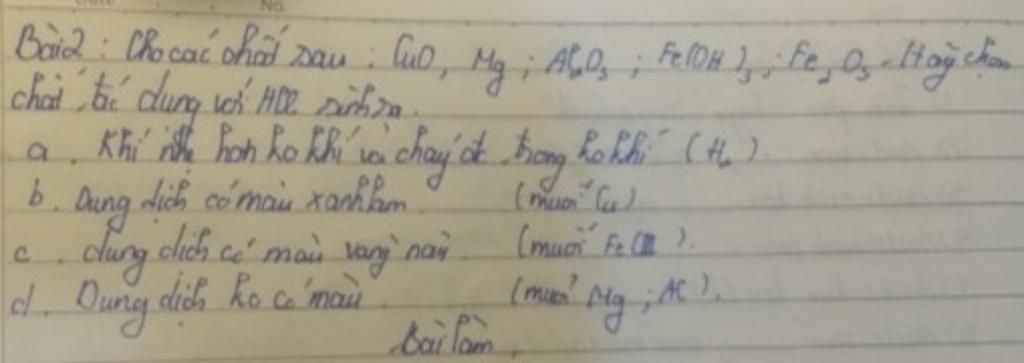 Bài 2 : Cho các chất sau : CuO, Mg ; Al2O3 ; Fe(OH)3 ; Fe2O3. Hãy chọn
chất tác dụng với HCl sinh ra.
a. Khí nhẹ hơn ko khí và cháy đc trong ko khí (H2).
b. Dung dịch có màu xanh lam (muối Cu)
c. dung dịch có màu vàng nâu (muối Fe(III).
d. Dung dịch ko có màu (muối Mg ; Al).
Bài làm.